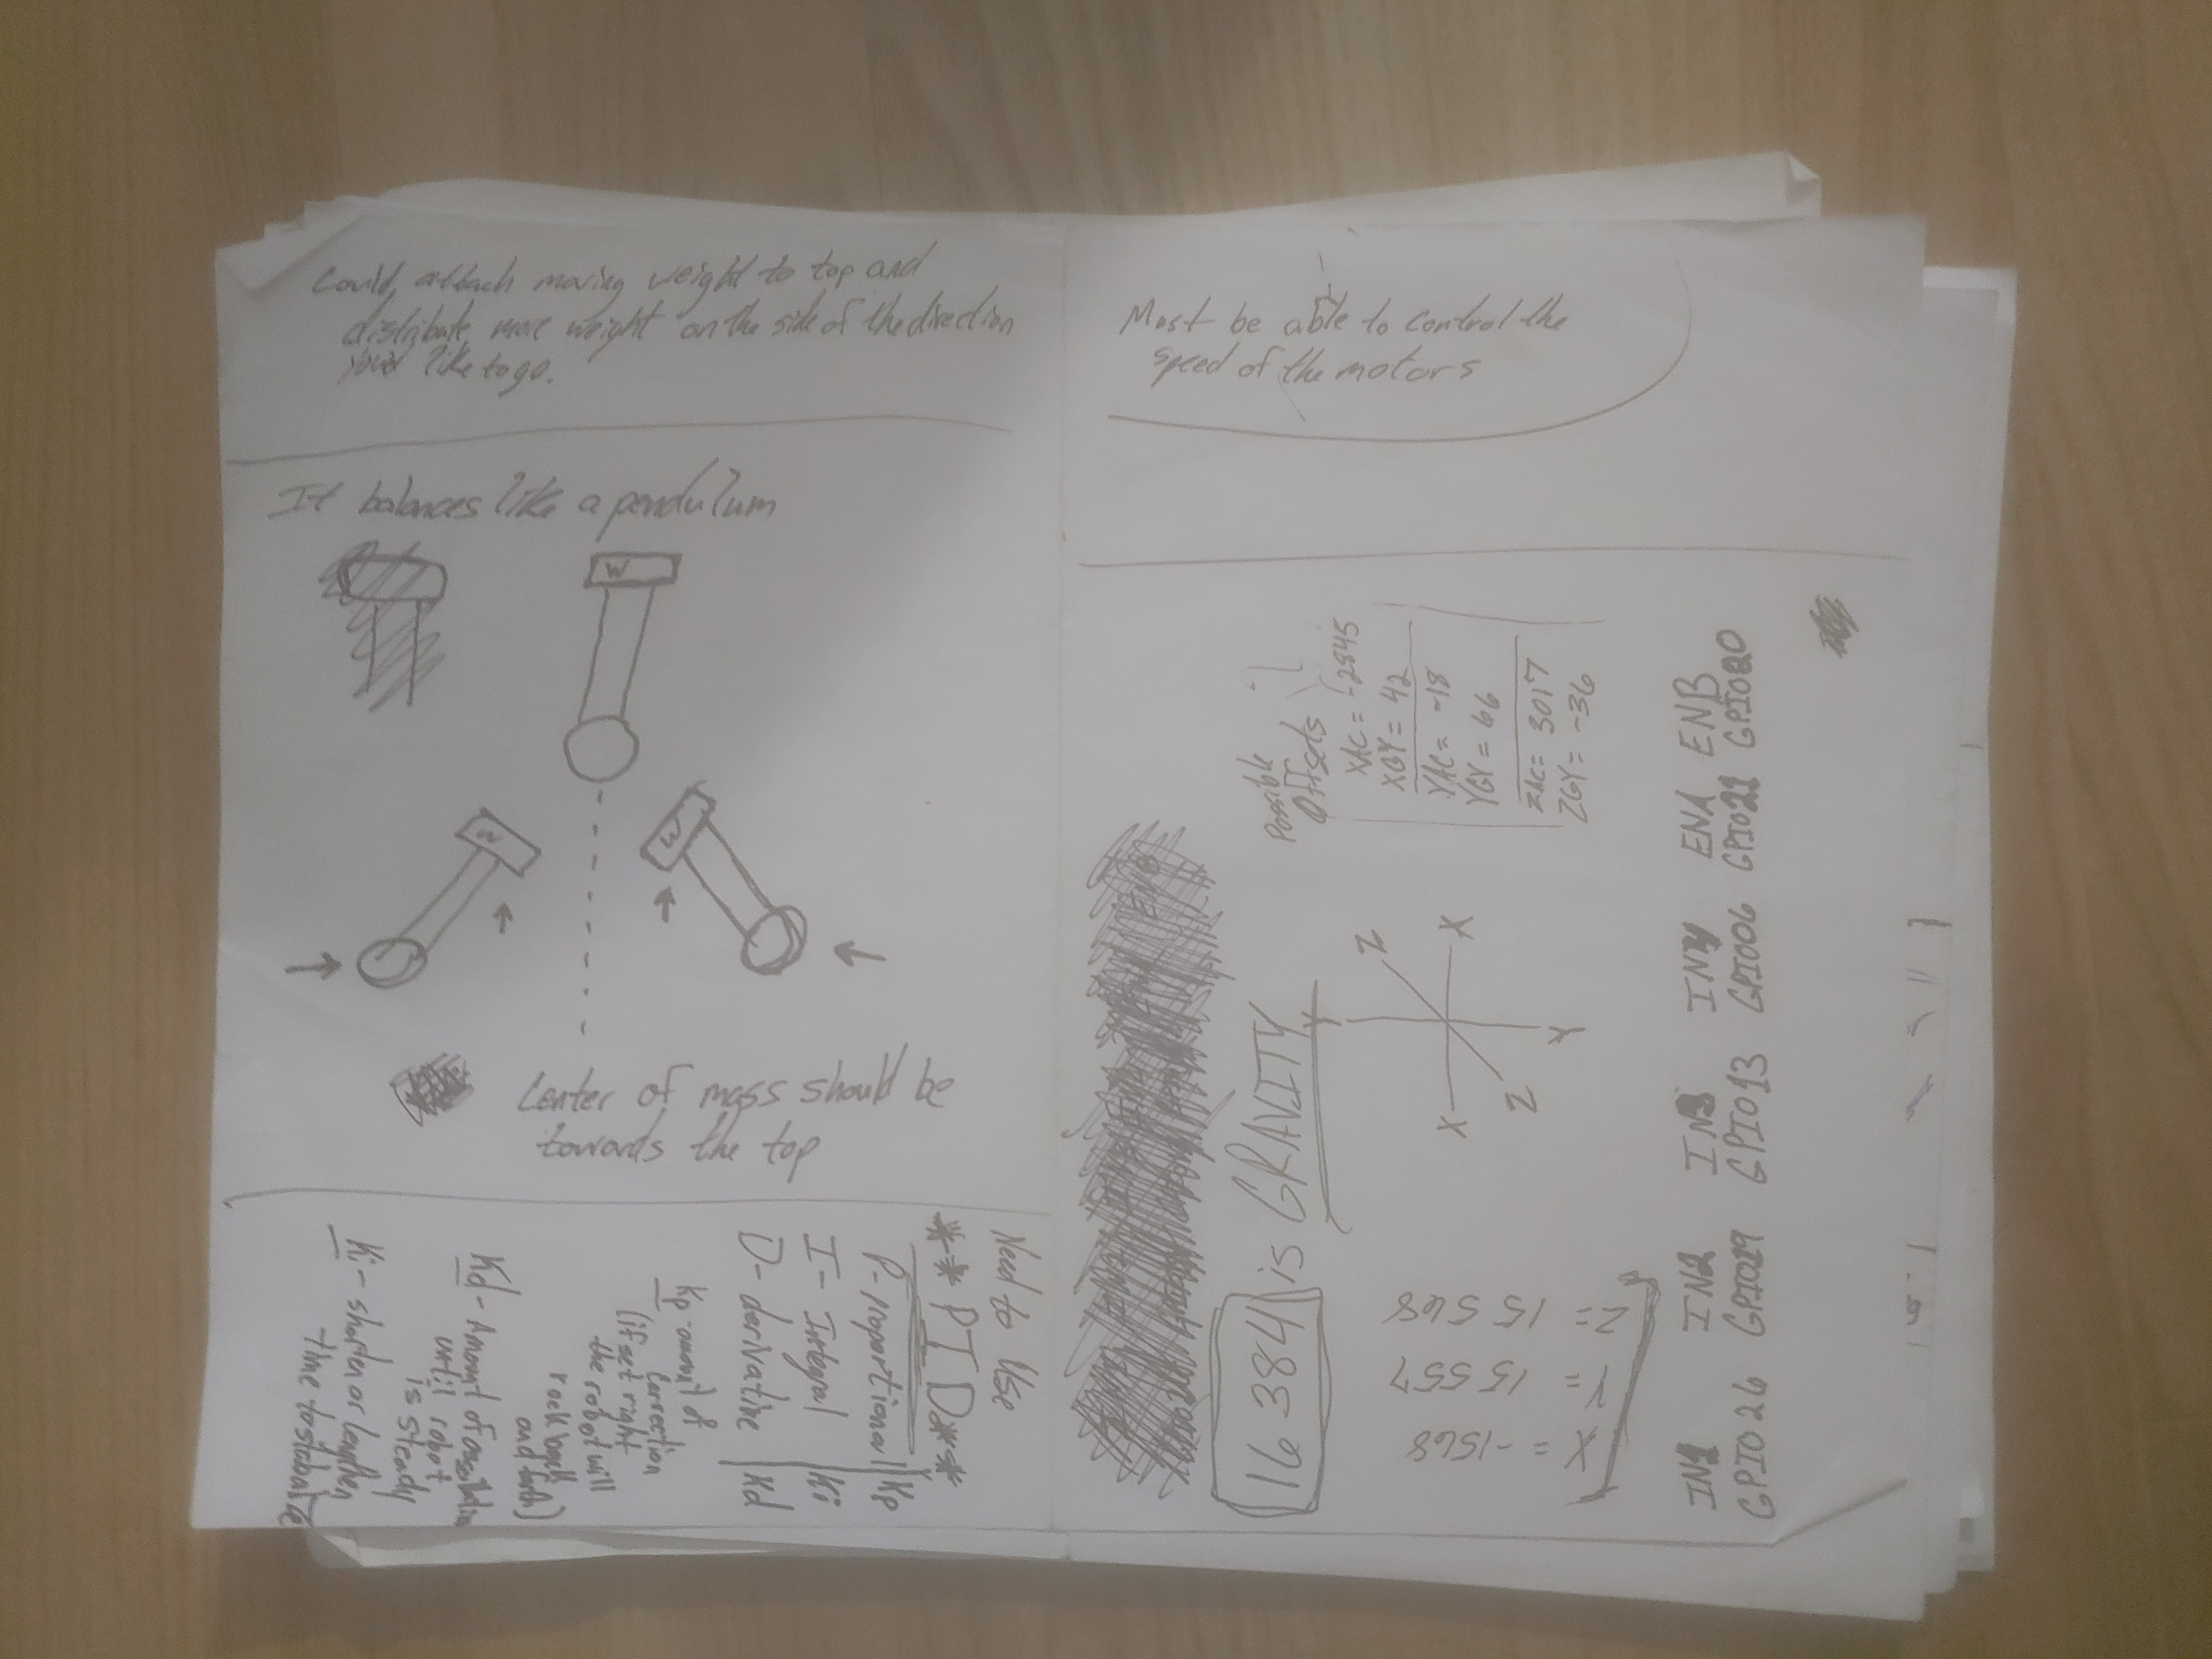 Could attach moving weight to top and
distribute more weight on the side of the direction
like to go.
It balances like a pendulum
W
W
W
Center of mass should be
towards the top
Need to Use
** PID **
P- proportional | Kp
I- Integral | Ki
D- derivative | Kd
Kp - amount of
correction
(if set right
the robot will
rock back
and forth)
Kd - Amount of
until robot
is steady
Ki - shorten or lengthen
time to stabalize
Must be able to control the
speed of the motors
ENB
16 384 is GRAVITY
Possible
Offsets
XAC = -2845
XGY = 42
YAC = -18
YGY = 66
ZAC = 3017
ZGY = -36
Y
Z
X X
Z
Y
X = -1568
Y = 15557
Z = 15568
IN1 IN2 IN3 IN4 ENA ENB
GPIO26 GPIO19 GPIO13 GPIO06 GPIO21 GPIO20